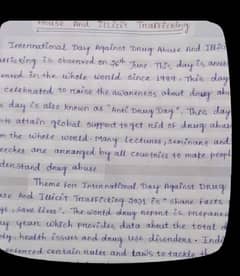 House And Illicit Trafficking
International Day Against Drug Abuse And Illicit
afficking is observed on 26th June. This day is
in the whole world since 1989. This day
celebrated to raise the awareness about drug abu
s day is also known as "Anti Drug Day". This day
to attain global support to get rid of drug abu
m the whole world. Many lectures, seminars and
eeches are arranged by all countries to make people
derstand drug abuse.
Theme for International Day Against Drug
use And Illicit Trafficking 2021 is "Share Facts
gs, Save lives". The world drug report is prepared
y year which provides data about the total
health issues and drug use disorders. Indi
certain rules and laws to tackle th